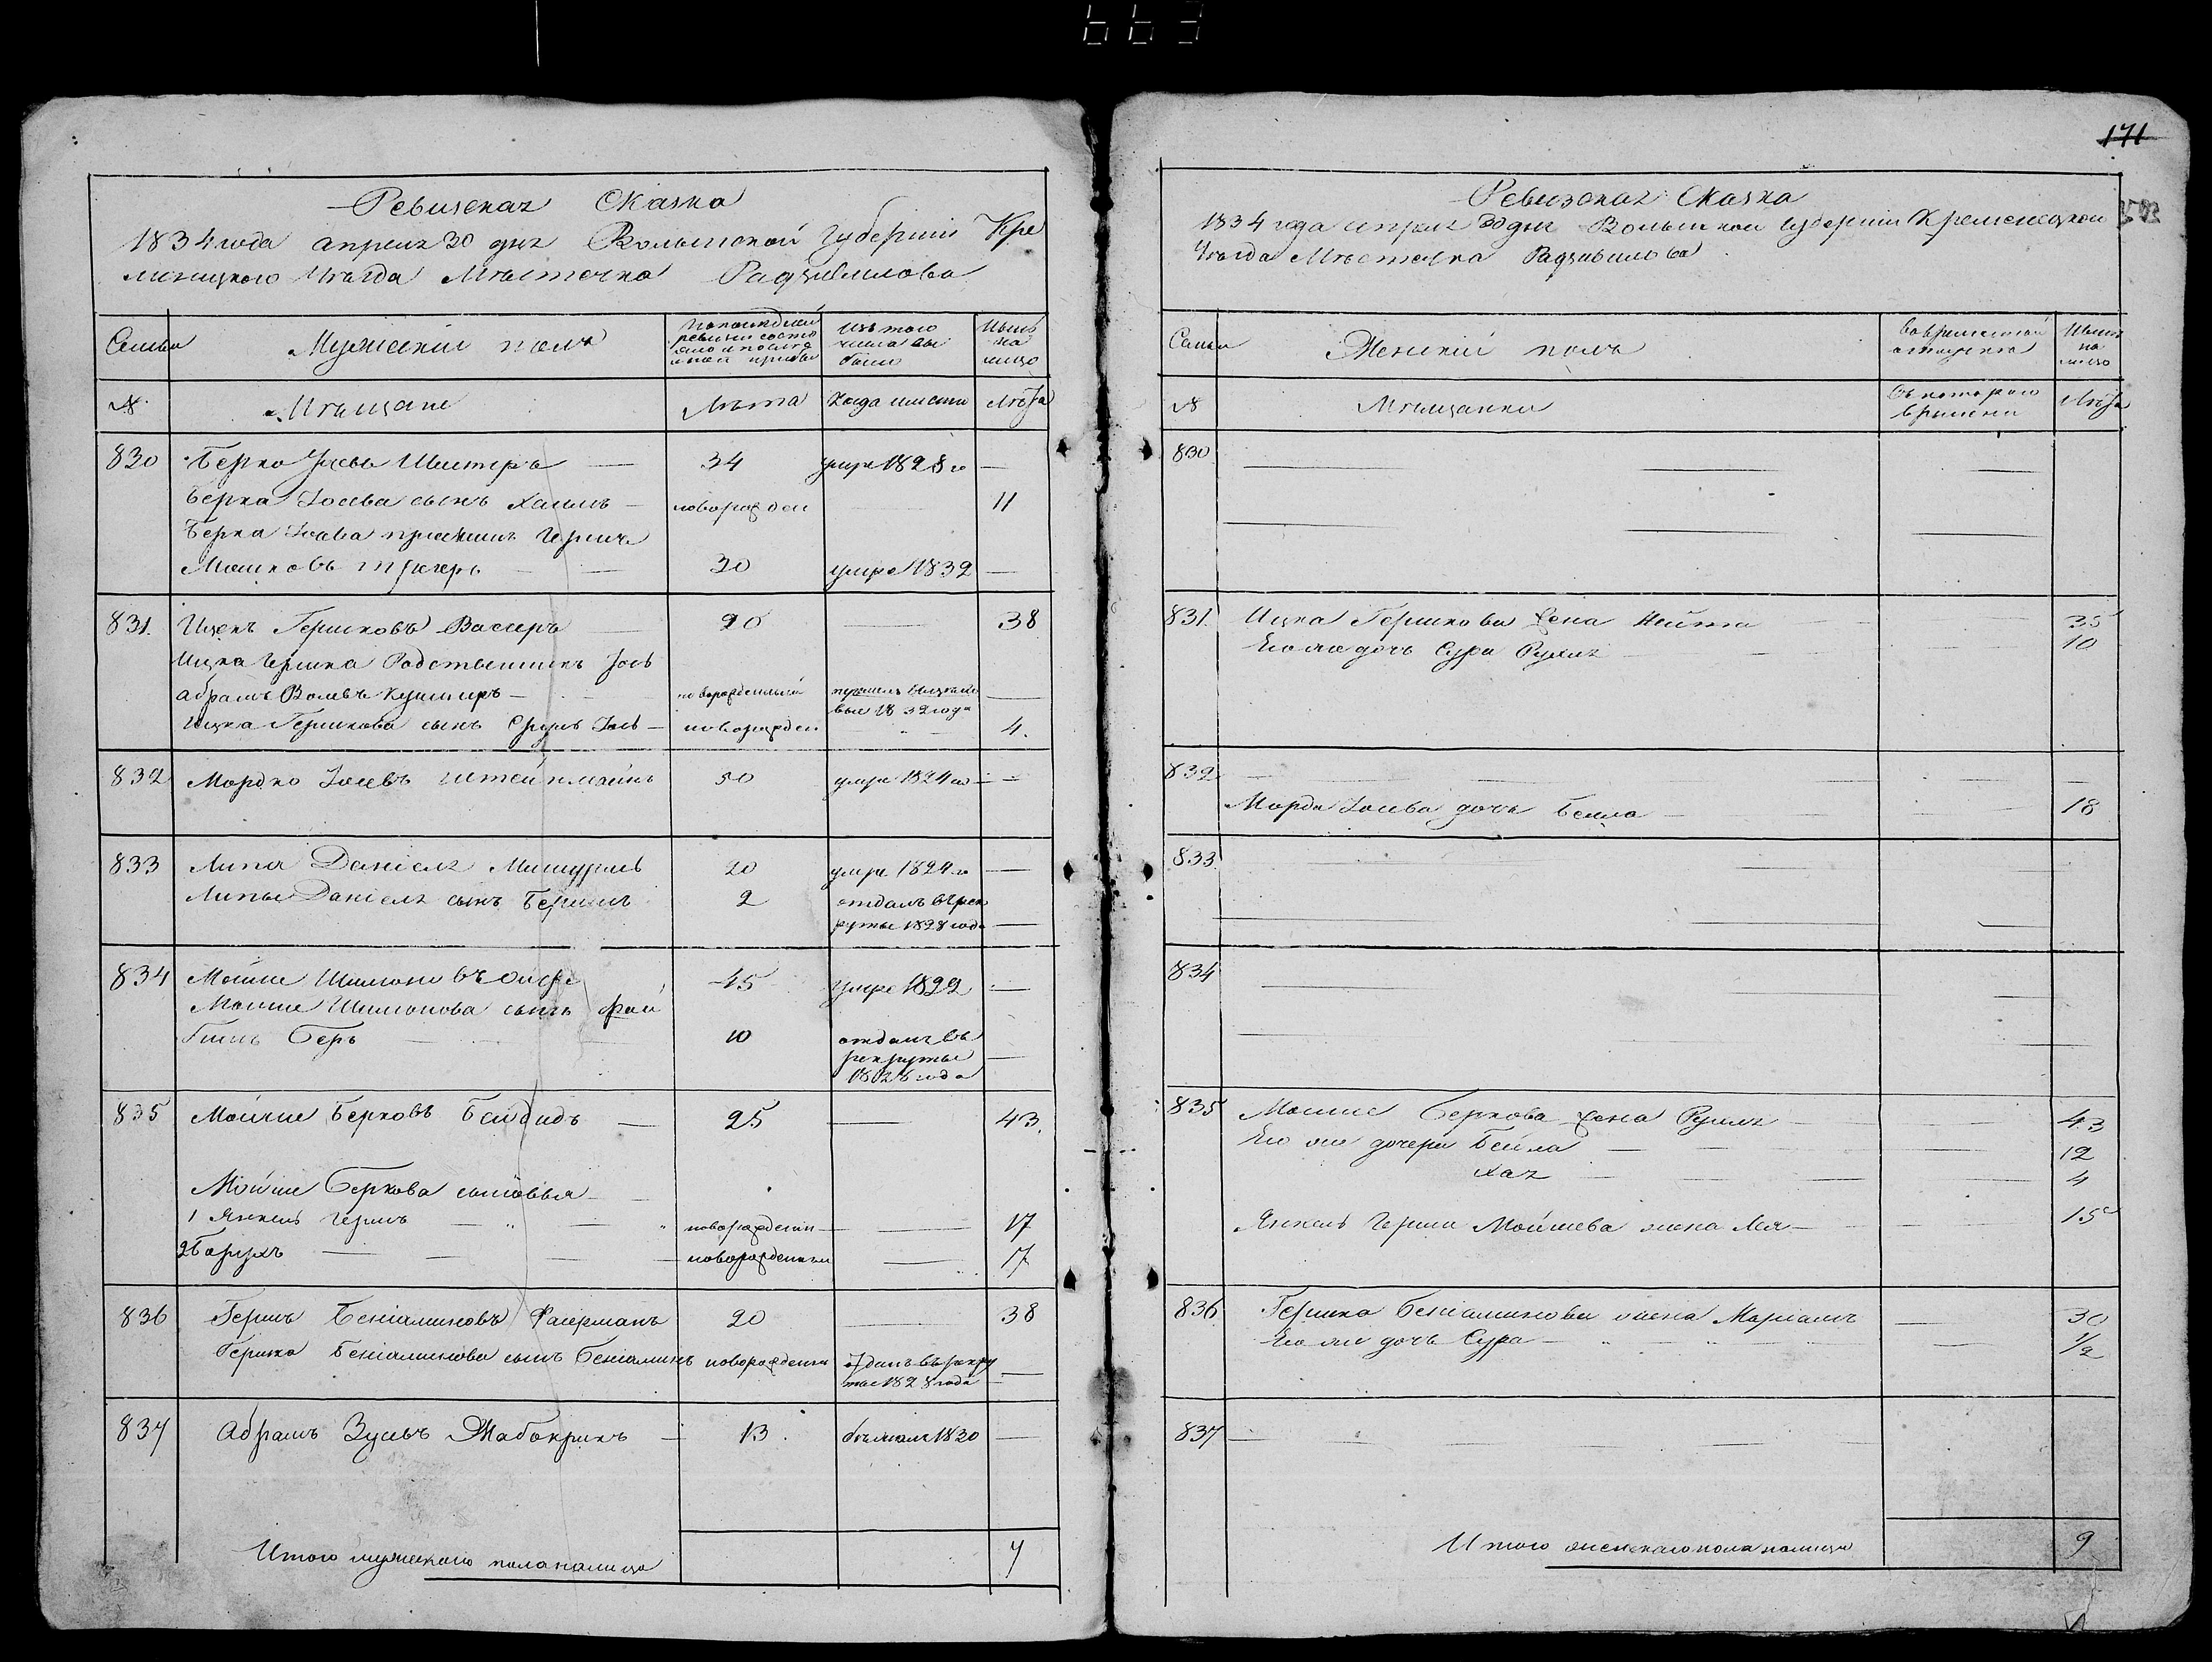 663
Ревизская Сказка
1834 года апреля 30 дня Волынской Губернии Кре
менецкого Уѣзда Мѣстечка Радзивилова
Семьи
Мужеский полъ
По последней
ревизии состо
яло и после
оной прибы
Изъ того
числа вы
было
Нынѣ
на
лицо
№
Мѣщане
Лѣта
Когда именно
Лѣта
830 Берко Иосевъ Шистеръ — 34 умре 1828 го —
Берка Иосева сынъ Хаимъ — новорожден 11
Берка Иосева Гершъ
Мошковъ 30 умре 1832 —
831. Ицекъ Гершковъ Васеръ 20 — 38
Ицка Гершка Иосъ
Абрамъ Волевъ Кушниръ — новорожденный
вые 1832 года
Ицка Гершкова сынъ Сруль Иосъ — новорожден 4.
832 Мордко Иосевъ Штейнманъ 50 умре 1824 го —
833 Липа Даниеля 20 умре 1824 го —
Липы Даниеля сынъ Бериш 2 отданъ въ рек
руты 1828 года —
834 Мойше Шимоновъ 45 умре 1822 —
Мойше Шимонова сынъ Фай
Бер 10 отданъ въ
рекруты —
1828 года
835 Мойше Берковъ — 25 — 43.
Мойше Беркова сыновья —
1 Янкель Гершъ — новорожденн — 17
2 Борухъ — новорожденны — 17
836 Гершъ Бениаминовъ Фаерманъ 20 — 38
Гершка Бениаминова сынъ Бениаминъ новорожденн отданъ въ рекру
ты 1828 года —
837 Абрамъ Зусевъ Жабокрикъ — 13. бѣжалъ 1830 —
Итого мужеского пола налицо 7
171
Ревизская Сказка
1834 года апреля 30 дня Волынской Губернии Кременецкой
Уѣзда Мѣстечка Радзивилова
Семьи
Женский полъ
Во временной
отлучке
Нынѣ
на
лицо
№
Мѣщанки
Съ которого
времени
Лѣта
830
831. Ицка Гершкова жена 35
Его же дочь Сура Рухля 10
832
Морда Иосева дочь Бейла — 18
833
834
835 Мошие Беркова жена Рухля 43
Его же дочери Бейла — 12
Хая 4
Янкель Герша Мойшева жена Лея — 15
836 Гершка Бениаминова жена Мариамъ — 30
Его же дочь Сура — 1/2
837 —
Итого женскаго пола налицо 9